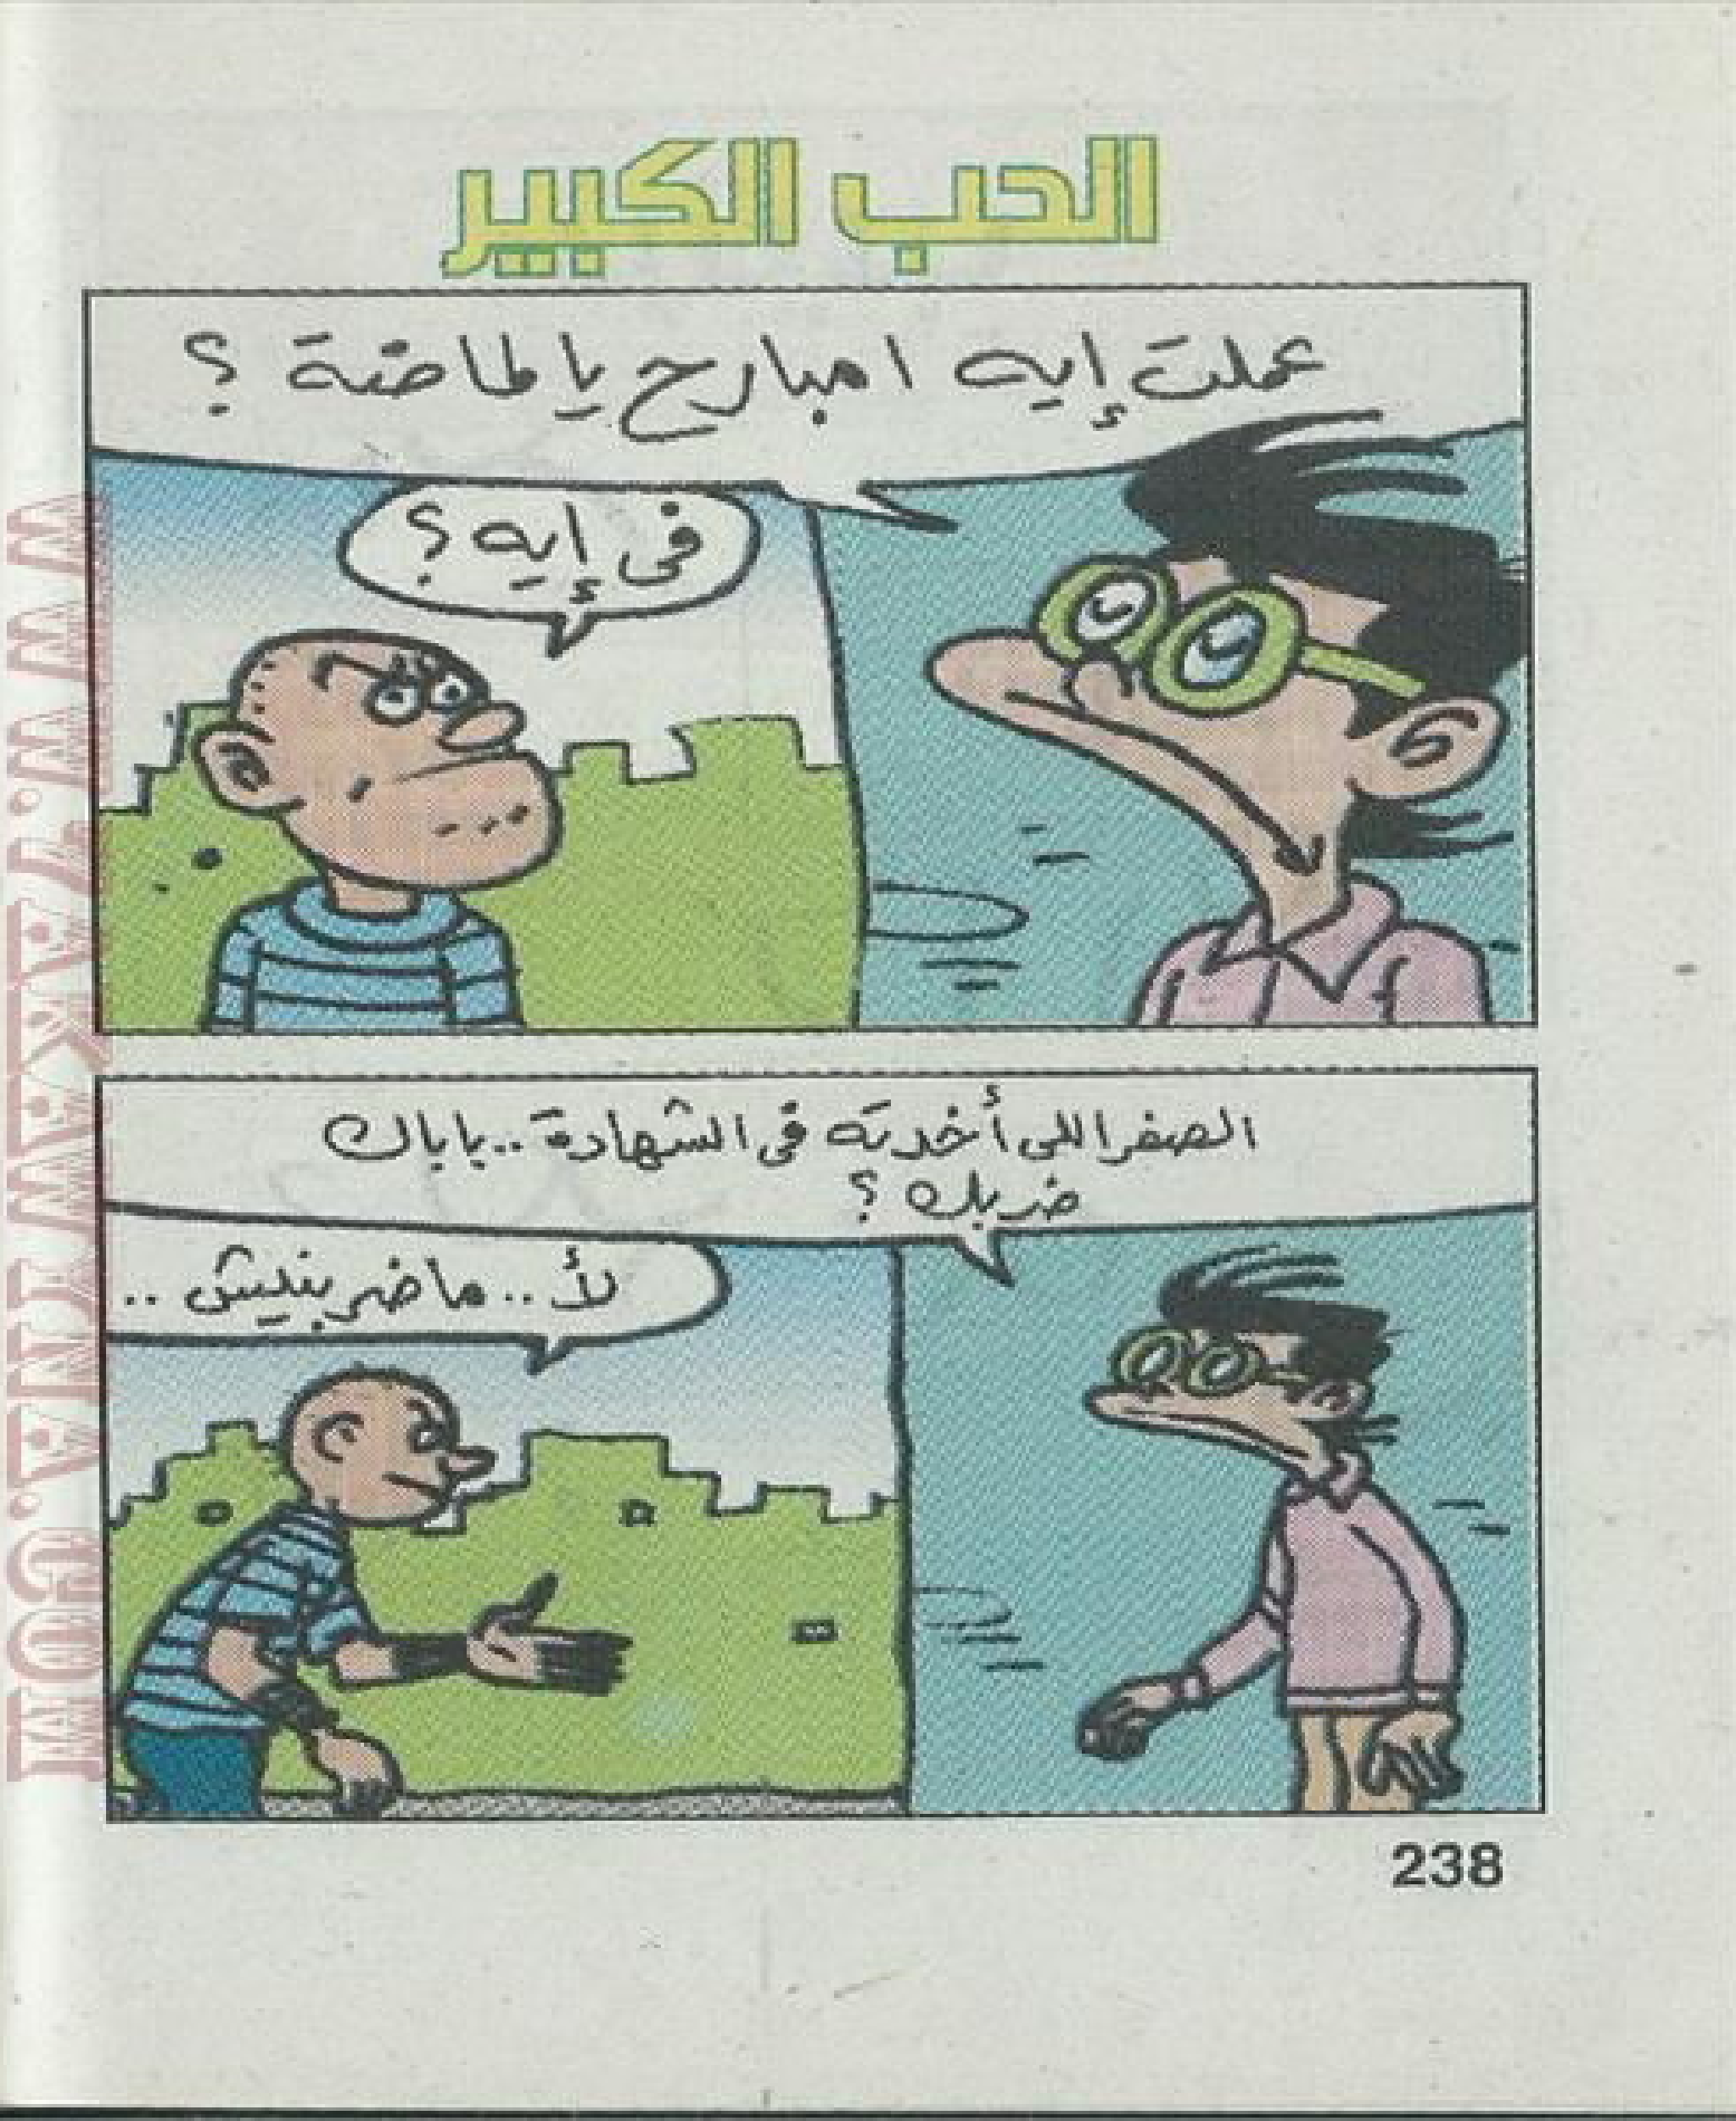 الحب الكبير
عملت إيه امبارح يا لماضة ؟
فى إيه ؟
الصفر اللى أخدته فى الشهادة .. باباك
ضربك ؟
لأ .. ماضربنيش ..
238